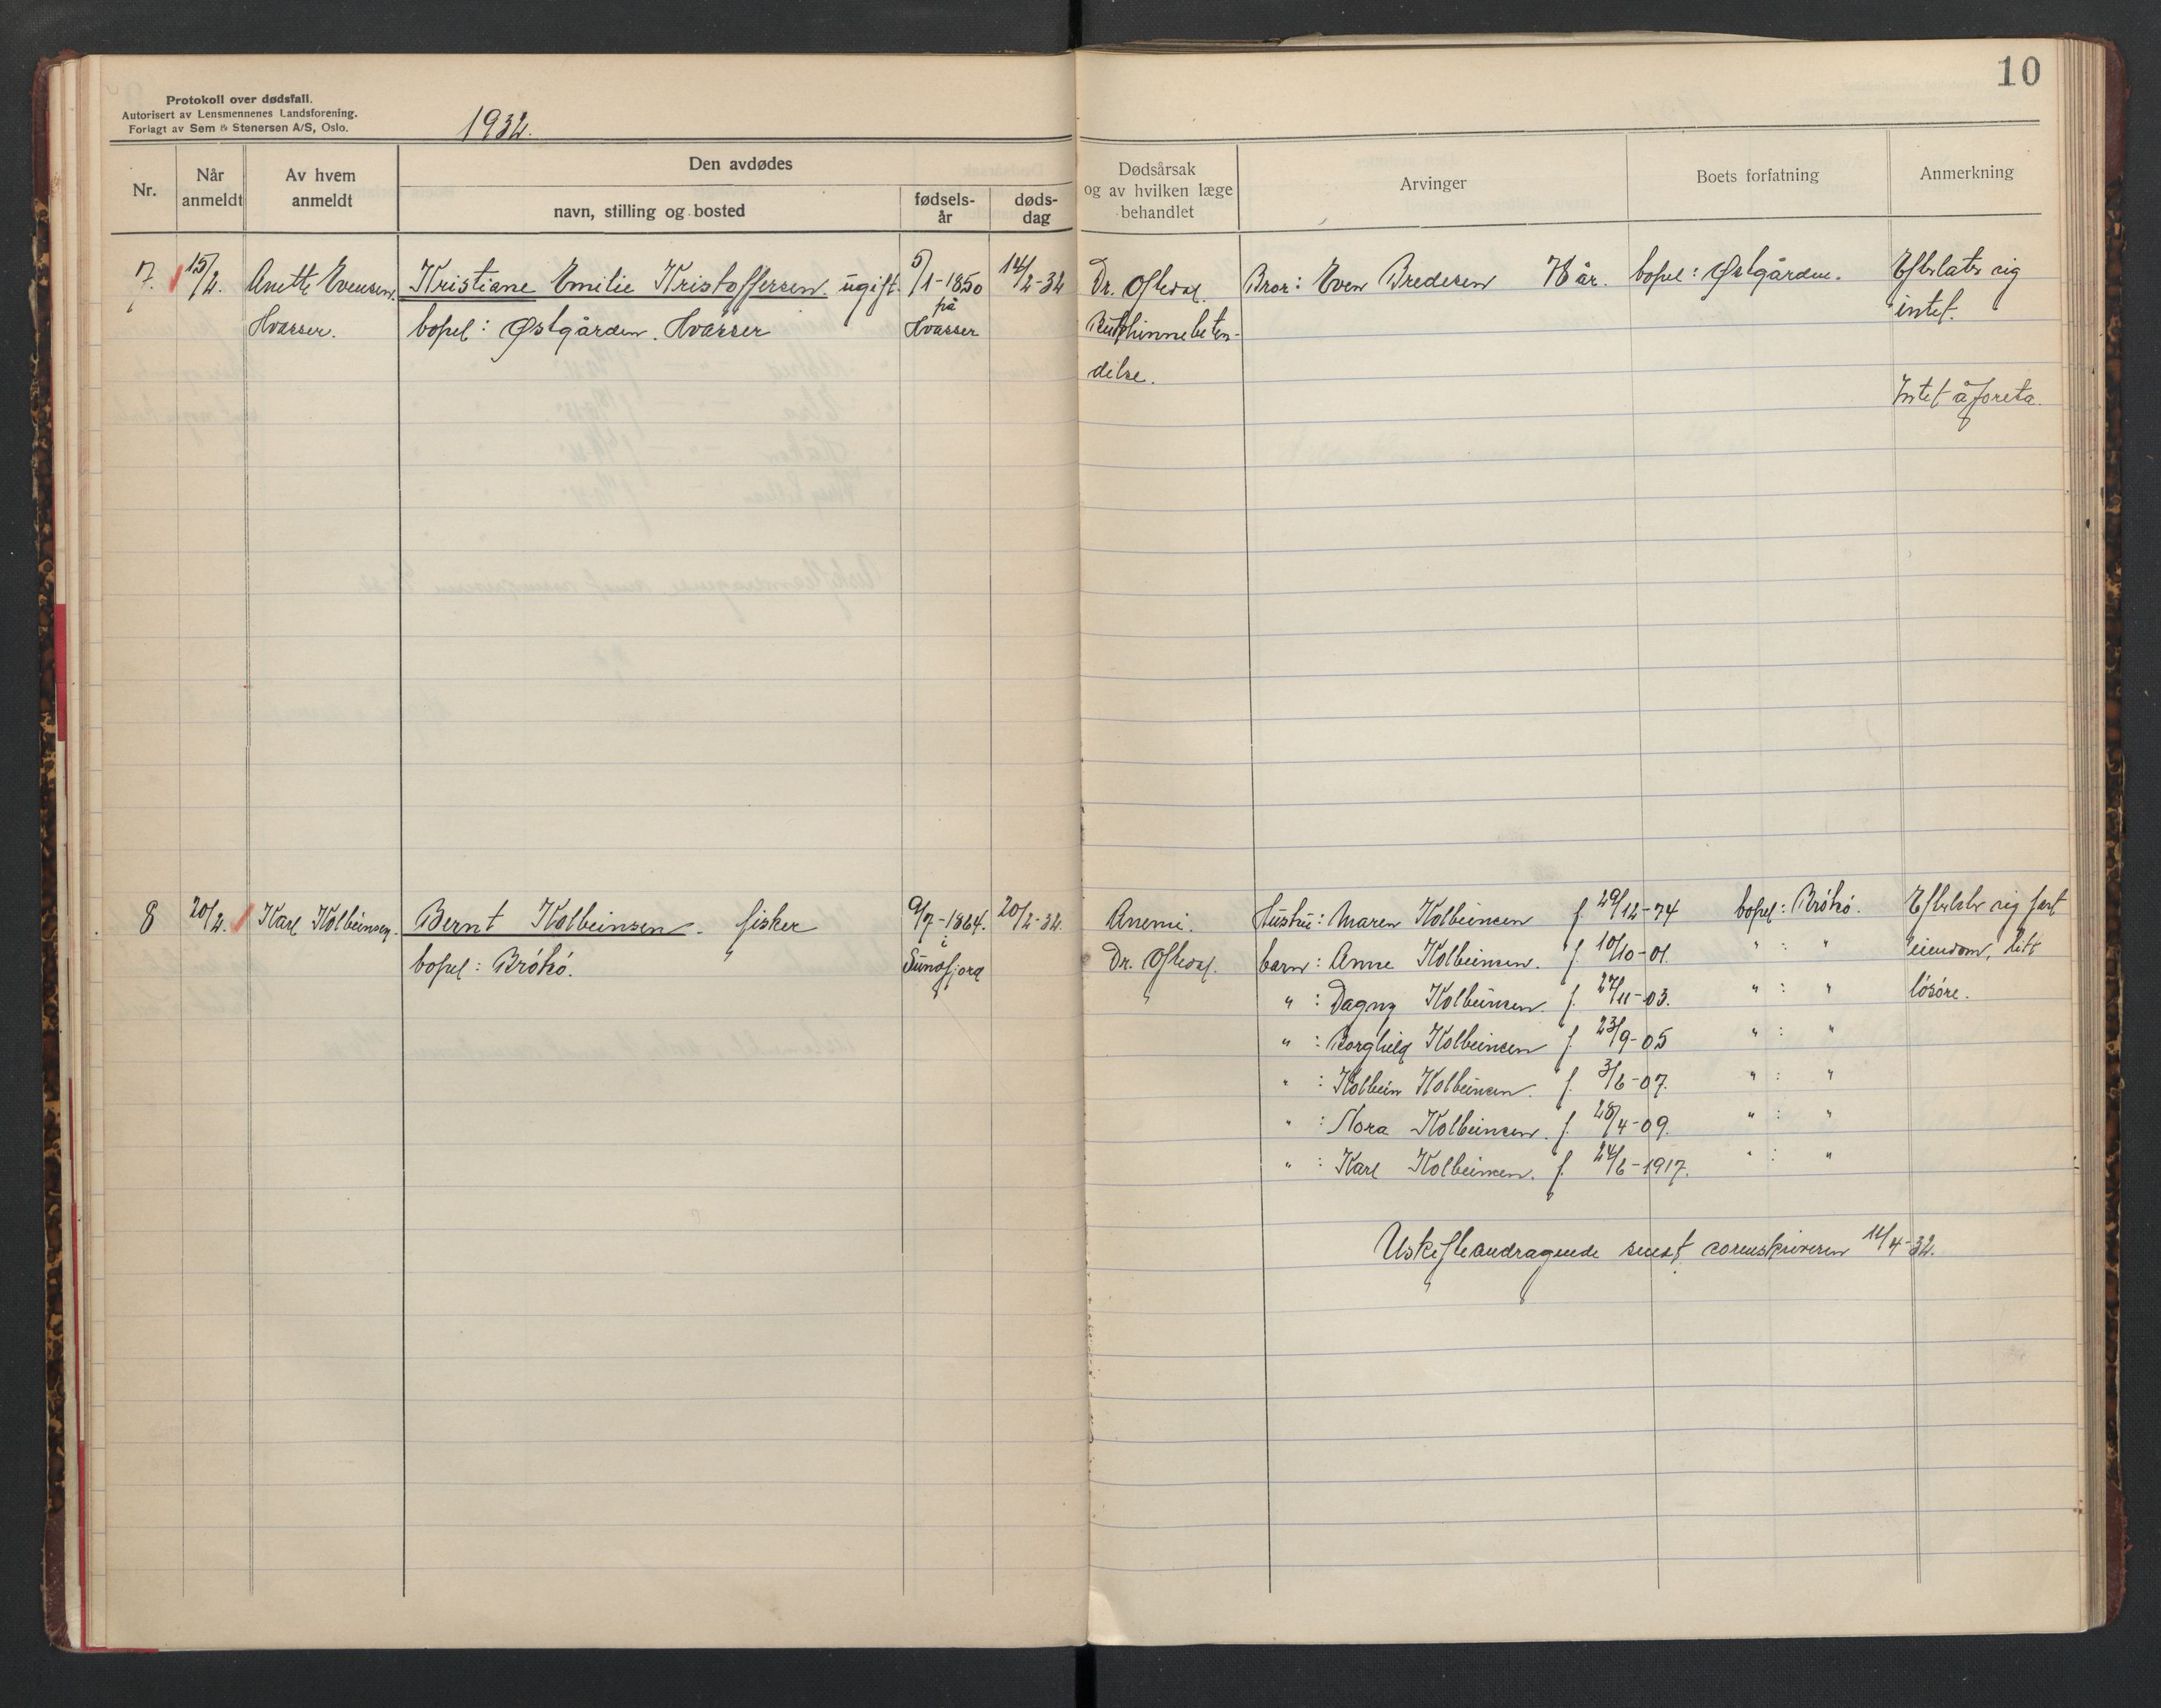 10
Protokoll over dødsfall.
Autorisert av Lensmennenes Landsforening.
Forlagt av Sem & Stenersen A/S, Oslo.
1932.
Nr.
Når anmeldt
Av hvem anmeldt
Den avdødes
navn, stilling og bosted
fødsels- år
døds- dag
Dødsårsak og av hvilken læge behandlet
Arvinger
Boets forfatning
Anmerkning
7. 15/2. Anette Evensen. Kristiane Emilie Kristoffersen. ugift. 5/1-1850 14/2-32 Dr. Oftedal. Bror: Even Bredesen 78 år. bopel: Østgården. Efterlater sig
Hvasser. bopel: Østgården. Hvasser på Hvasser Bukhinnebeten- intet.
delse.
Intet å foreta.
8 20/2. Karl Kolbeinsen. Bernt Kolbeinsen. fisker 9/7-1864. 20/2-32. Anemi. Hustru: Maren Kolbeinsen f. 29/12-74 bopel: Brötsö. Efterlater sig fast
bopel: Brötsö. i Sunnfjord Dr. Oftedal. barn: Anne Kolbeinsen. f. 10/10-01. " : " eiendom, litt
" : Dagny Kolbeinsen. f. 27/11-03. " : " lösöre.
" : Borghild Kolbeinsen f. 23/9-05 " : "
" : Kolbein Kolbeinsen. f. 3/6-07. " : "
" : Nora Kolbeinsen. f. 28/4-09. " : "
" : Karl Kolbeinsen. f. 24/6-1917. " : "
Uskifteandragende sendt sorenskriveren 11/4-32.